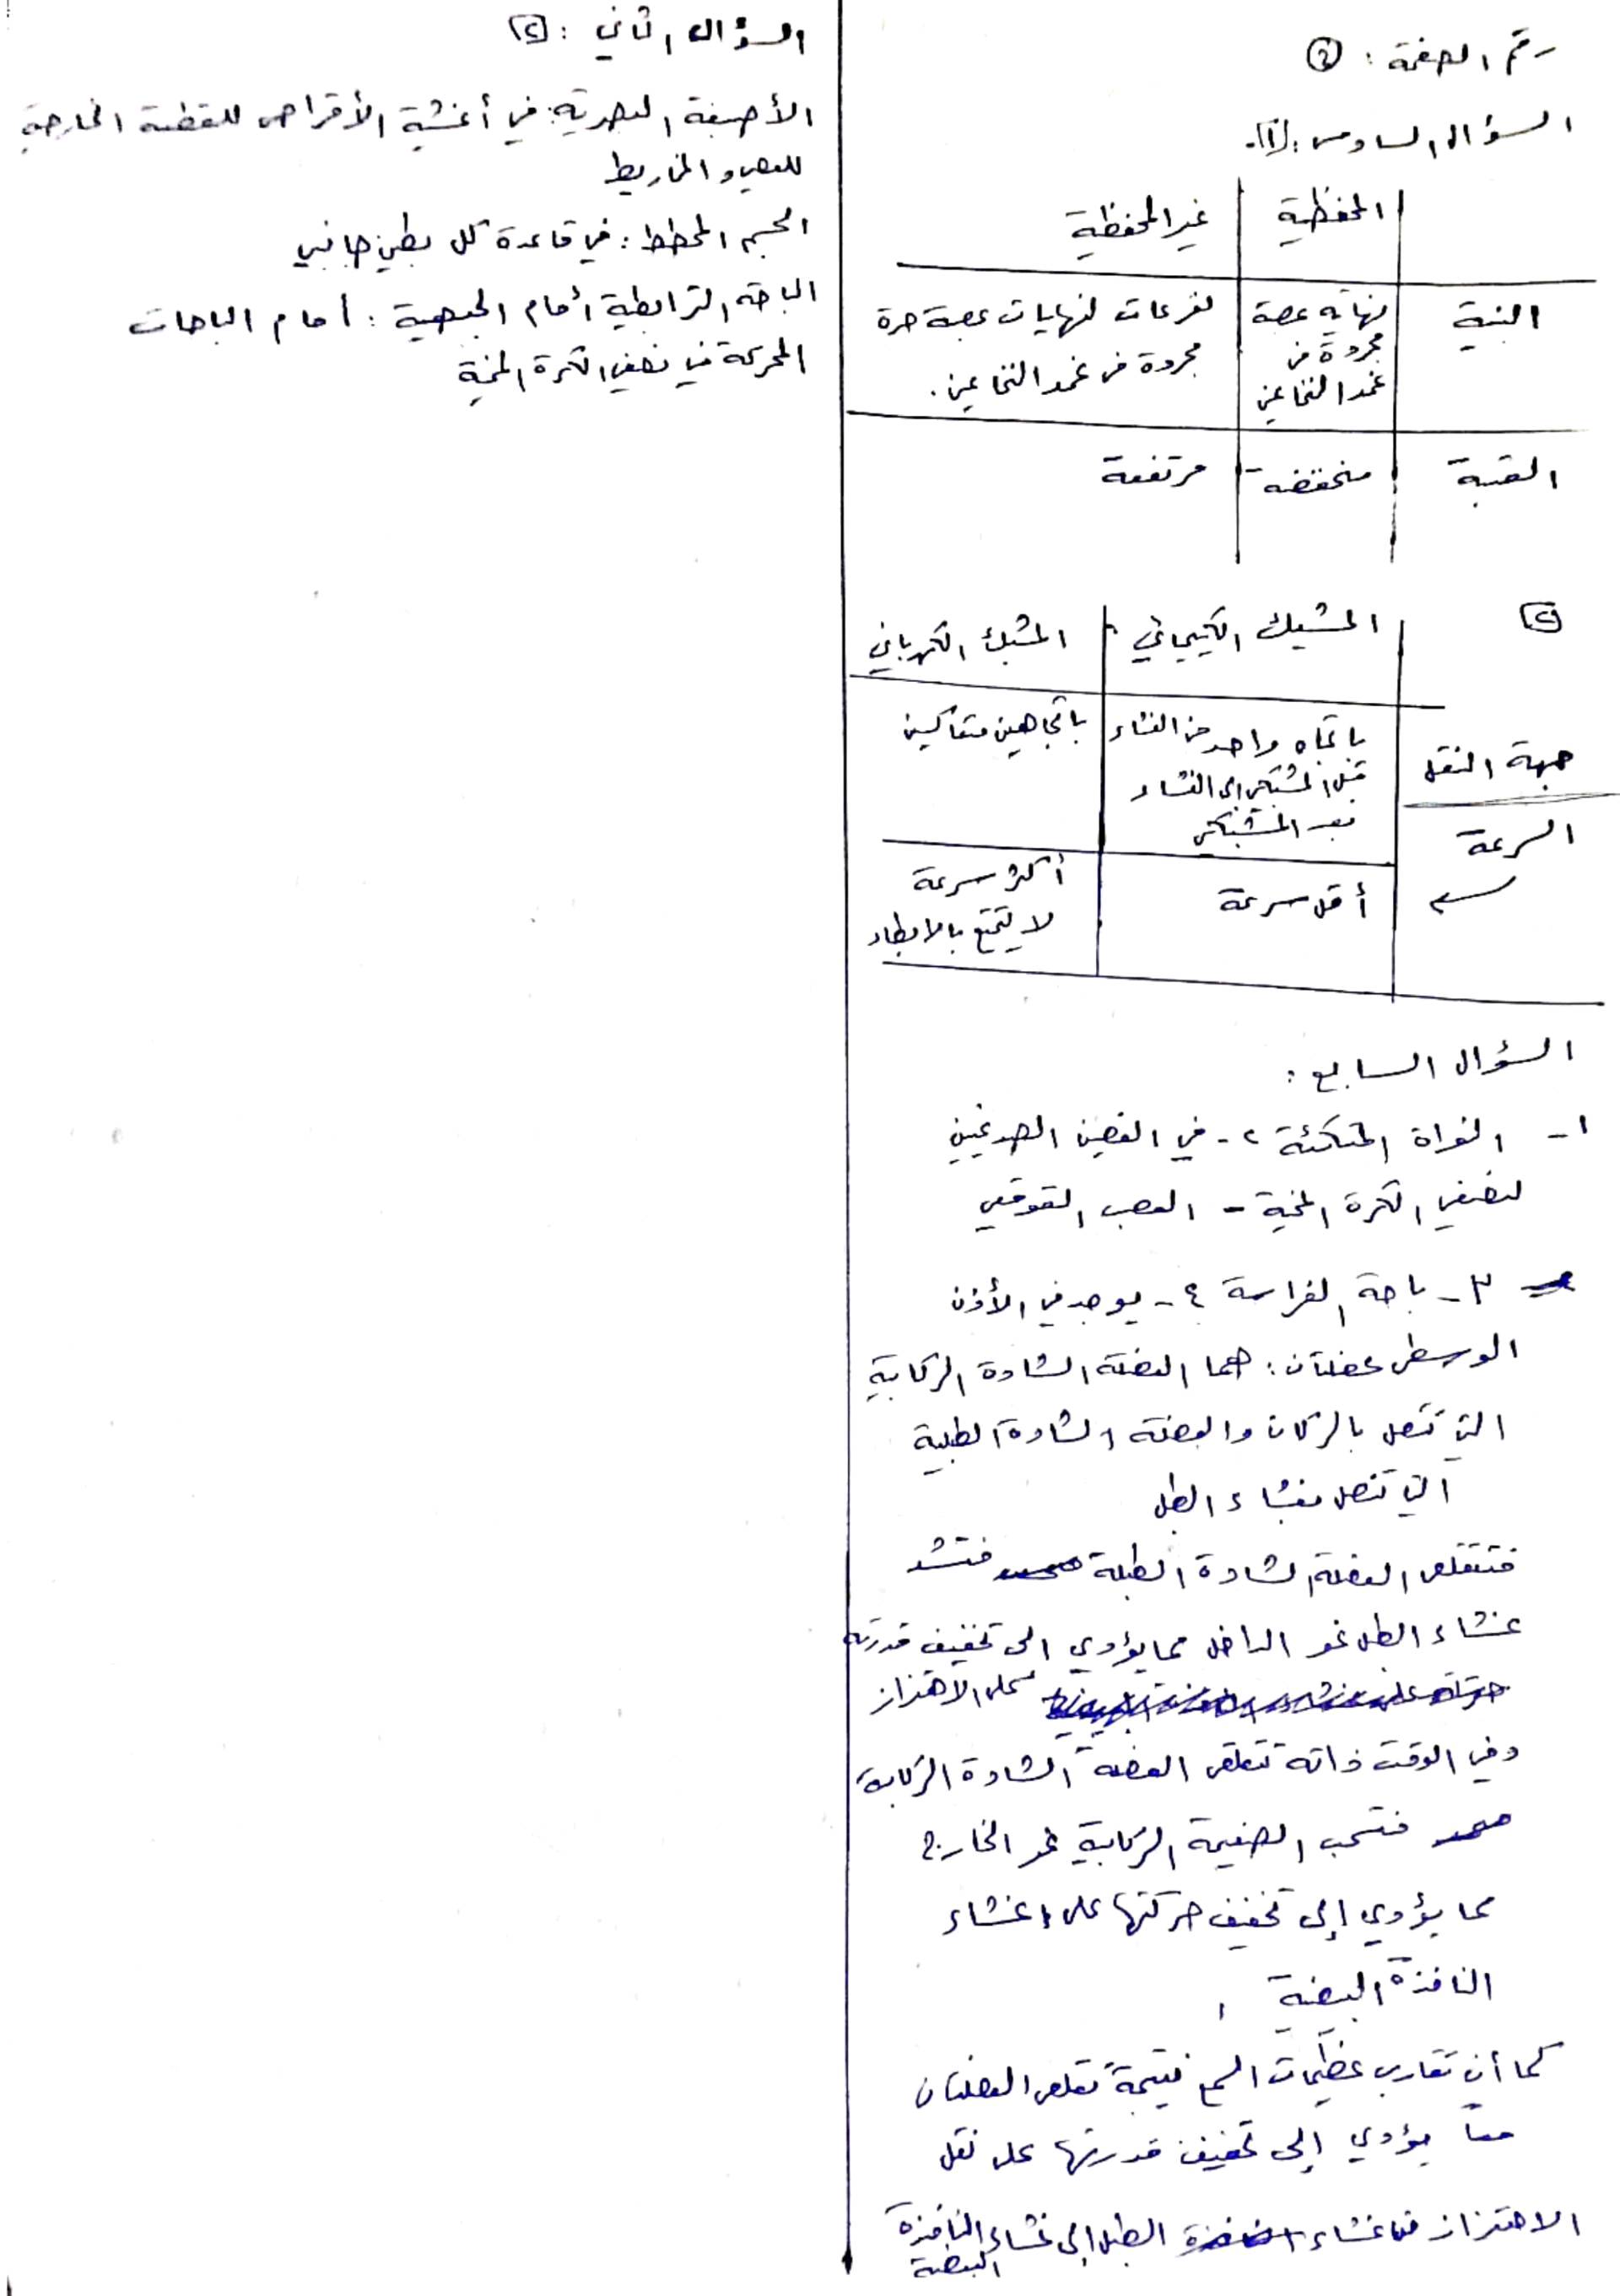 رقم الصفحة : ④
السؤال السادس : 1.
المحفظية | غير المحفظية
البنية | نهاية عصبية مجردة من غمد النخاعين | تفرعات لنهايات عصبية حرة مجردة من غمد النخاعين .
العتبة | منخفضة | مرتفعة
2
المشبك الكيميائي | المشبك الكهربائي
جهة النقل | باتجاه واحد من الغشاء قبل المشبكي الى الغشاء بعد المشبكي | باتجاهين متعاكسين
السرعة | أقل سرعة | أكثر سرعة لا يتمتع بالابطاء
السؤال السابع :
١ - النواة المتكئة ٢ - في الفصين الصدغيين
لنصفي الكرة المخية - العصب القوقعي
٣ - باحة الفراسة ٤ - يوجد في الأذن
الوسطى عضلتان : هما العضلة الشادة الركابية
التي تتصل بالركاب والعضلة الشادة الطبلية
التي تتصل بغشاء الطبل
فتتقلص العضلة الشادة الطبلة فتشد
غشاء الطبل نحو الداخل مما يؤدي الى تخفيف قدرته
على الاهتزاز
وفي الوقت ذاته تتقلص العضلة الشادة الركابية
فتسحب الصفيحة الركابية نحو الخارج
مما يؤدي إلى تخفيف حركتها على غشاء
النافذة البيضية
كما أن تقارب عظيمات السمع نتيجة تقلص العضلتان
معاً يؤدي إلى تخفيف قدرتها على نقل
الاهتزاز من غشاء الطبل إلى غشاء النافذة
البيضية
السؤال الثاني : 2
الأصبغة البصرية : في أغشية الأقراص للقطعة الخارجية
للعصي والمخاريط
الجسم المخطط : في قاعدة كل بطين جانبي
الباحة الترابطية أمام الجبهية : أمام الباحات
المحركة في نصفي الكرة المخية